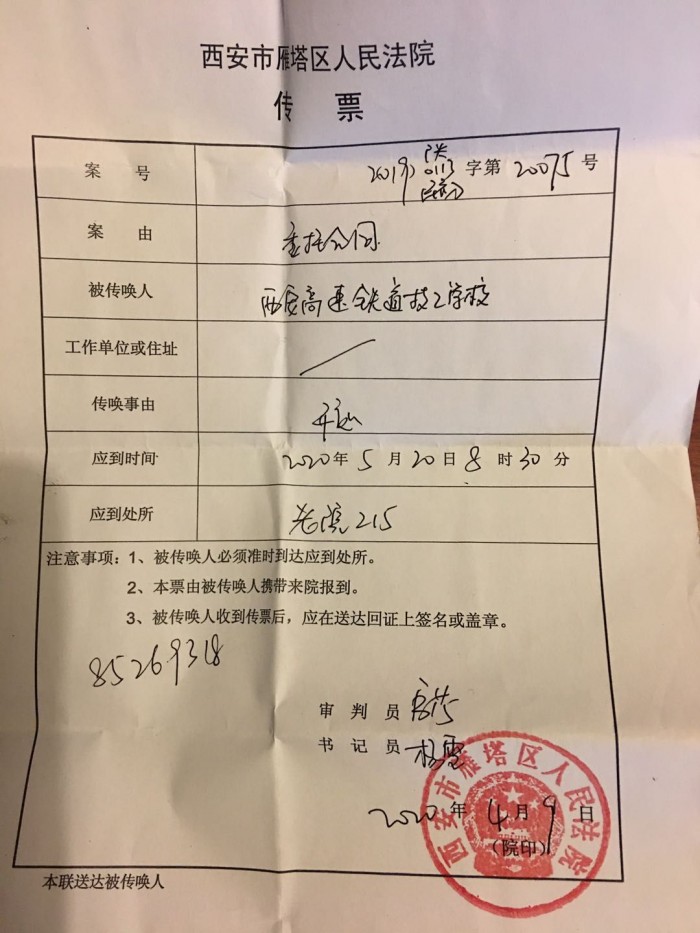 西安市雁塔区人民法院
传 票
案 号 2019) 陕0113民初 字第 20075 号
案 由 委托合同
被传唤人 西安高速铁道技工学校
工作单位或住址 /
传唤事由 开庭
应到时间 2020年 5 月 20日 8 时 30 分
应到处所 老院215
注意事项：1、被传唤人必须准时到达应到处所。
2、本票由被传唤人携带来院报到。
3、被传唤人收到传票后，应在送达回证上签名或盖章。
85269318
审 判 员
书 记 员 杨雪
2020 年 4 月 9 日
(院印)
西安市雁塔区人民法院
本联送达被传唤人